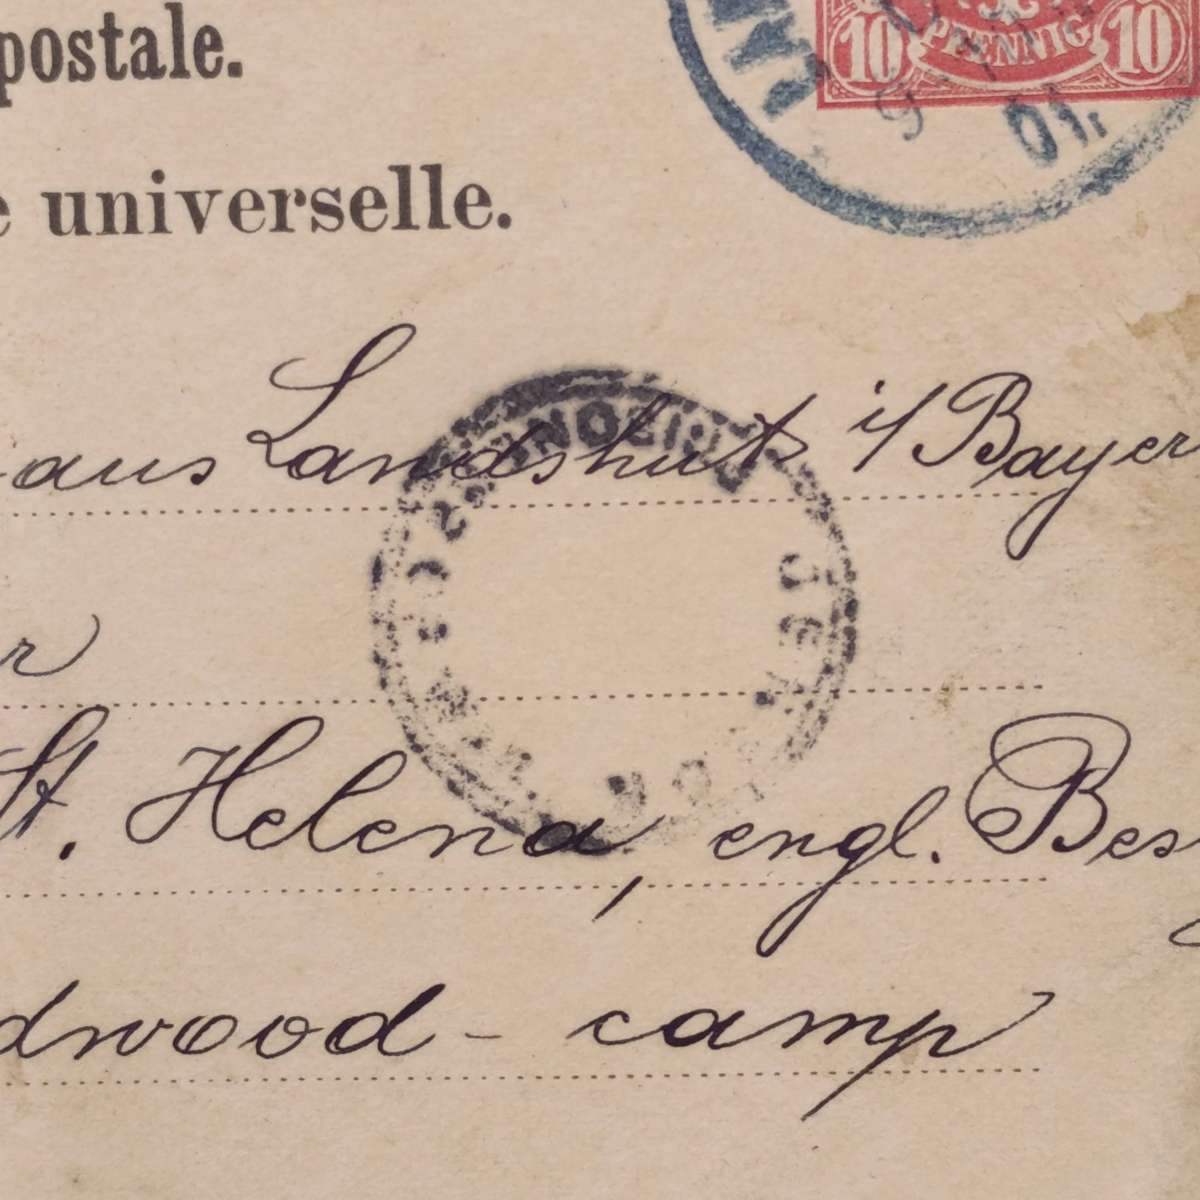 postale.
10 PFENNIG 10
universelle.
01.
aus Landshut i/Bayer
St. Helena, engl. Bes
dwood - camp